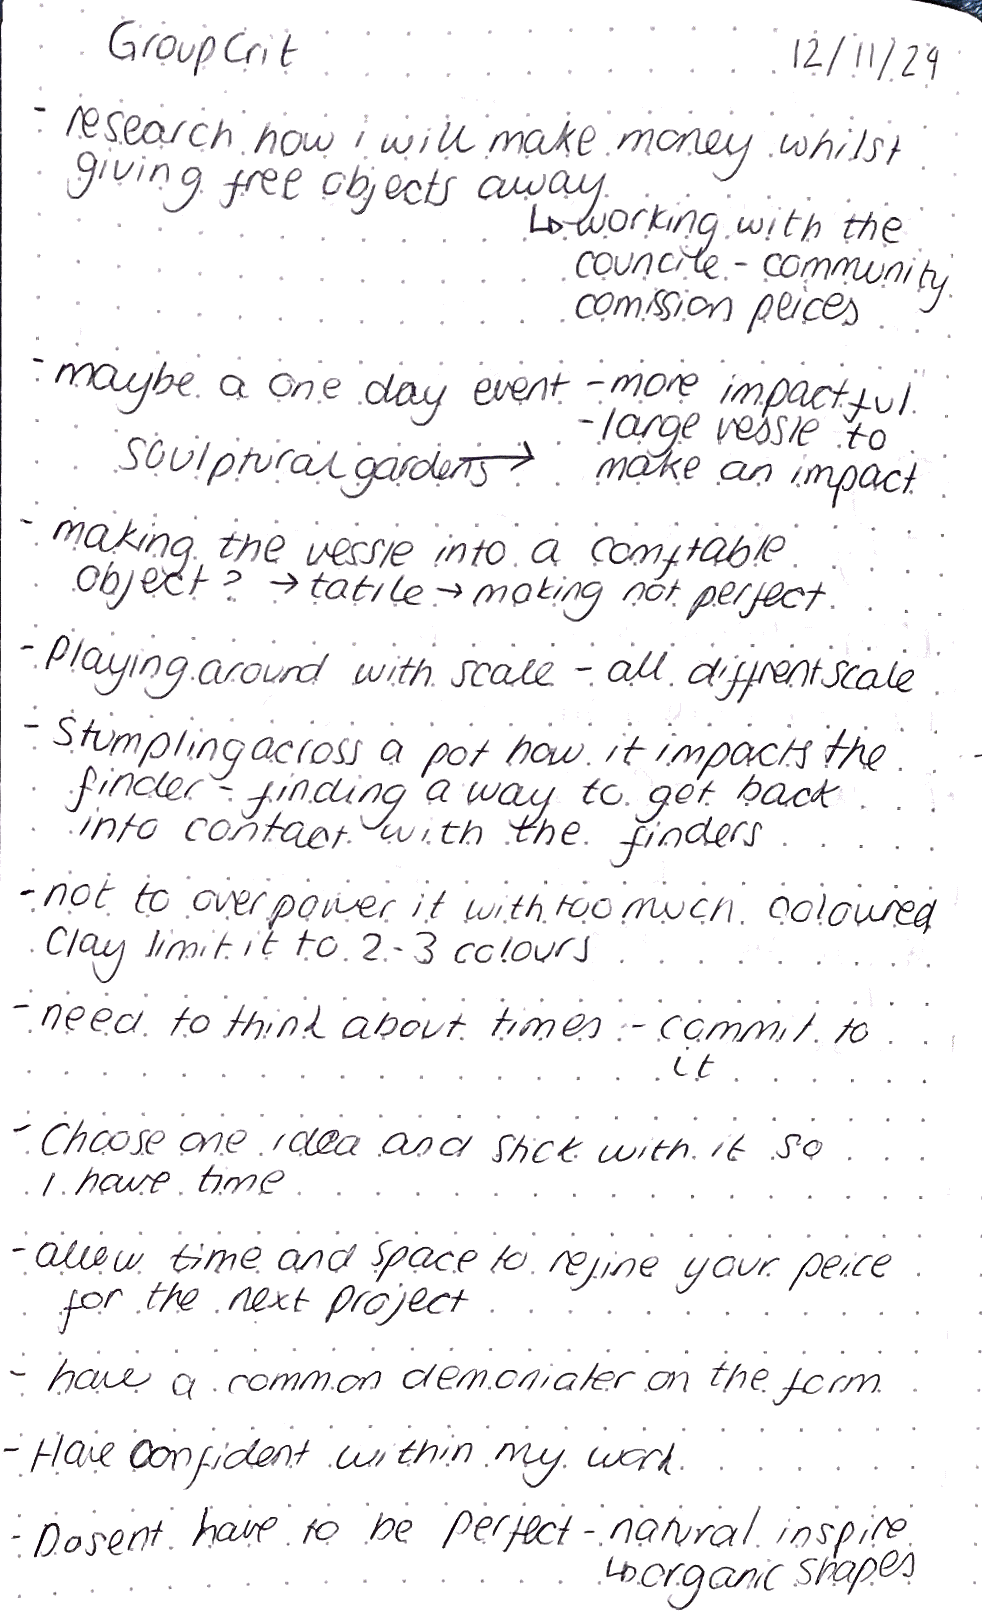 Group Crit 12/11/24
- research how i will make money whilst
giving free objects away
↳ working with the
councile - community
comission peices
- maybe a one day event - more impactful
- large vessle to
sculptural gardens → make an impact
- making the vessle into a comftable
object? → tatile → making not perfect
- Playing around with scale - all diffrent scale
- Stumpling across a pot how it impacts the
finder - finding a way to get back
into contact with the finders
- not to over power it with too much coloured
Clay limit it to 2-3 colours
- need to think about times - commit to
it
- Choose one idea and stick with it so
I have time
- allow time and space to refine your peice
for the next project
- have a common demoniater on the form
- Have confident within my work
- Dosent have to be perfect - natural inspire
↳ organic shapes